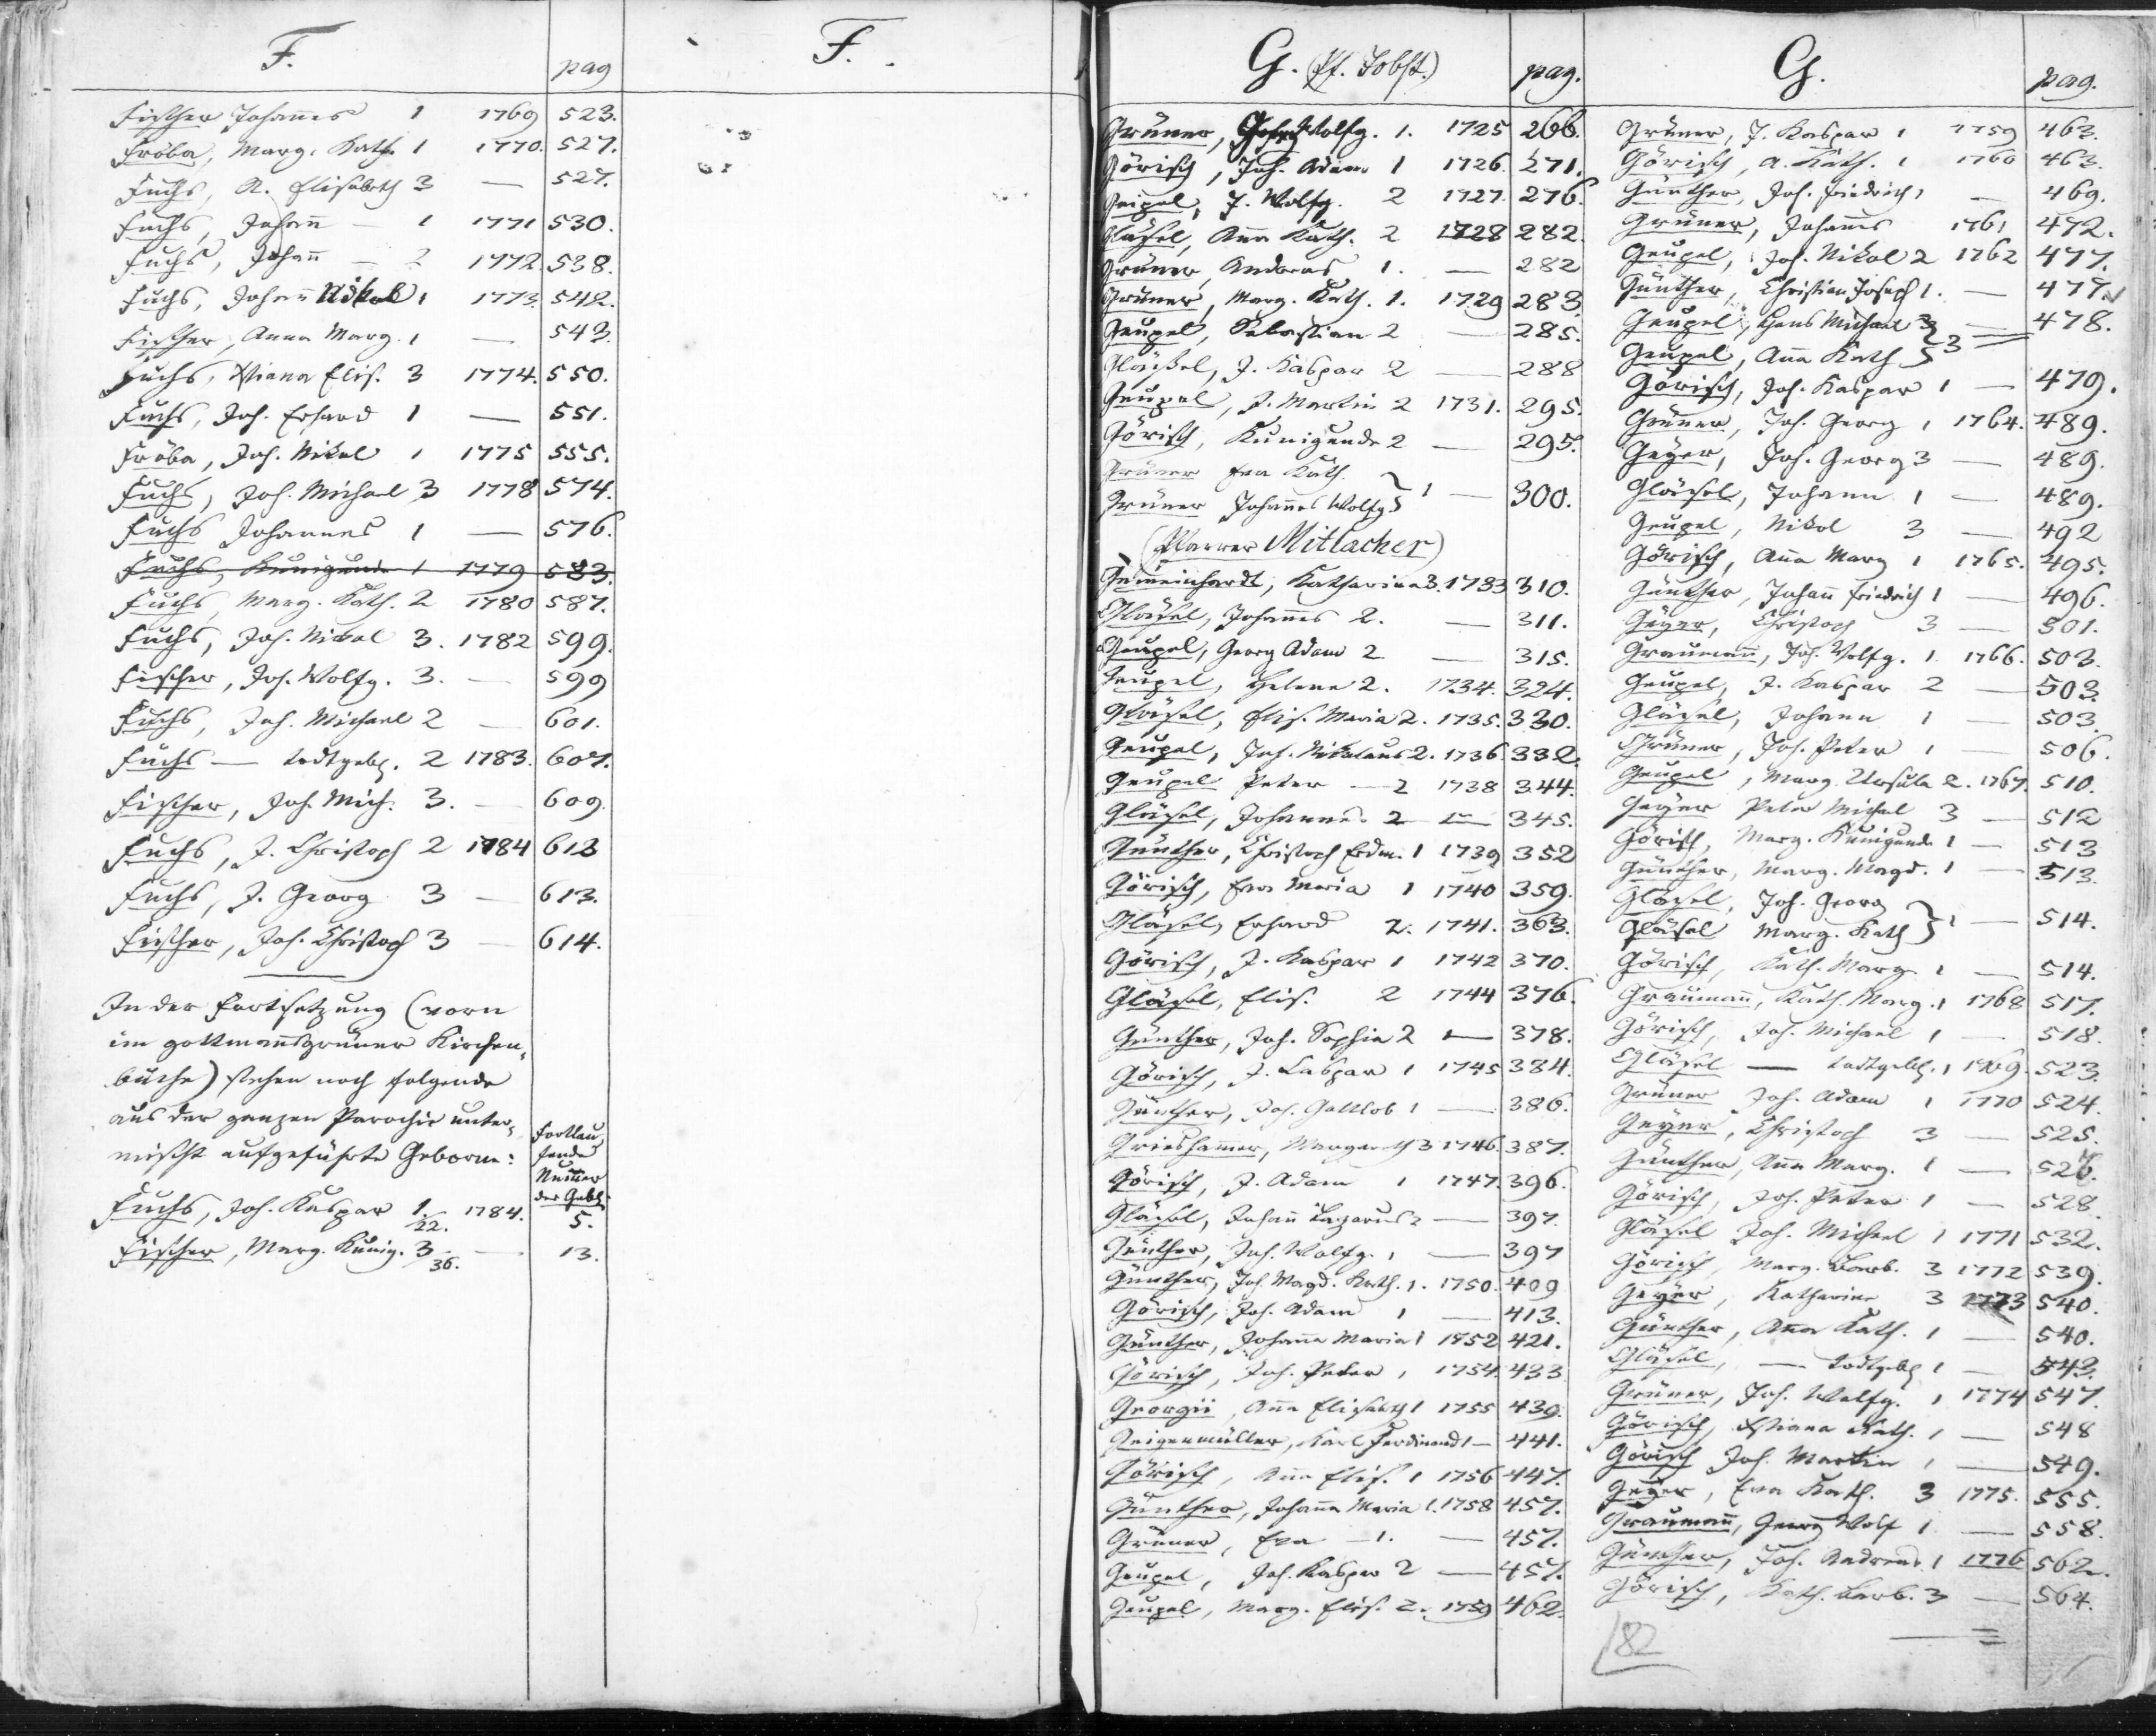 F.
pag
Fischer Johannes 1 1769 523.
Fröba, Marg. Kath. 1 1770. 527.
Fuchs, A. Elisabeth 3 — 527.
Fuchs, Johann — 1 1771 530.
Fuchs, Johann — 2 1772. 538.
Fuchs, Johann Nikol 1 1773. 542.
Fischer, Anna Marg. 1 — 543.
Fuchs, Xstiana Elis. 3 1774. 550.
Fuchs, Joh. Erhard 1 — 551.
Fröba, Joh. Nikol 1 1775 555.
Fuchs, Joh. Michael 3 1778 574.
Fuchs Johannes 1 — 576.
Fuchs, Kunigunde 1 1779 583.
Fuchs Marg. Kath. 2 1780 587.
Fuchs, Joh. Nikol 3. 1782 599.
Fischer, Joh. Wolfg. 3. — 599
Fuchs, Joh. Michael 2 — 601.
Fuchs — todtgeb. 2 1783. 607.
Fischer, Joh. Mich. 3. — 609.
Fuchs, J. Christoph 2 1784 613
Fuchs, J. Georg 3 — 613.
Fischer, Joh. Christoph 3 — 614.
In der Fortsetzung (vorn
im gottmannsgrüner Kirchen-
buche) stehen noch folgende
aus der ganzen Parochie unter-
mischt aufgeführte Geborne:
Fortlau
fende
Numer
der Geb.
Fuchs, Joh. Kaspar 1./22. 1784. 5.
Fischer, Marg. Kunig. 3/36. — 13.
F.
G. (Pf. Jobst.)
pag.
Grüner, Wolfg. 1. 1725 266.
Görisch, Joh. Adam 1 1726. 271.
Geipel, J. Wolfg. 2 1727. 276.
Gläsel, Anna Kath. 2 1728 282.
Grüner, Andreas 1. — 282
Grüner, Marg. Kath. 1. 1729 283.
Geupel, Sebastian 2 — 285.
Gläsel, J. Kaspar 2 — 288
Geupel, J. Martin 2 1731. 295.
Görisch, Kunigunde 2 — 295.
Grüner Eva Kath.
Grüner Johannes Wolfg. } 1 — 300.
(Pfarrer Mitlacher)
Gemeinhardt, Katharina 3. 1733 310.
Gläsel, Johannes 2. — 311.
Geupel, Georg Adam 2 — 315.
Geupel, Helena 2. 1734. 324.
Gläsel, Elis. Maria 2. 1735. 330.
Geupel, Joh. Nikolaus 2. 1736. 332.
Geupel Peter — 2 1738 344.
Gläsel, Johannes 2 — 345.
Günther, Christoph Erdm. 1 1739 352
Görisch, Eva Maria 1 1740 359.
Gläsel, Erhard 2. 1741. 363.
Görisch, J. Kaspar 1 1742 370.
Gläsel, Elis. 2 1744 376.
Günther, Joh. Sophia 2 — 378.
Görisch, J. Kaspar 1 1745 384.
Günther, Joh. Gottlob 1 — 386.
Grieshamer, Margareth 3 1746. 387.
Görisch, J. Adam 1 1747. 396.
Gläsel, Johann Lazarus 2 — 397.
Günther, Joh. Wolfg. 1 — 397
Günther, Joh. Magd. Kath. 1. 1750. 409
Görisch, Joh. Adam 1 — 413.
Günther, Johanna Maria 1 1752 421.
Görisch, Joh. Peter 1 1754. 433
Georgii, Anna Elisabeth 1 1755 439.
Geigenmüller, Karl Ferdinand 1 — 441.
Görisch, Anna Elis. 1 1756 447.
Günther, Johanna Maria 1. 1758 457.
Grüner, Eva — 1. — 457.
Geupel, Joh. Kaspar 2 — 457.
Geupel, Marg. Elis. 2. 1759 462.
G.
pag.
Grüner, J. Kaspar 1 1759 463.
Görisch, A. Kath. 1 1760 463.
Günther, Joh. Friedrich 1 — 469.
Grüner, Johannes 1761 472.
Geupel, Joh. Nikol 2 1762 477.
Günther, Christian Joseph 1. — 477.
Geupel, Hans Michael
Geupel, Anna Kath } 3 — 478.
Görisch, Joh. Kaspar 1 — 479.
Grüner, Joh. Georg 1 1764. 489.
Geyer, Joh. Georg 3 — 489.
Gläsel, Johann 1 — 489.
Geupel, Nikol 3 — 492
Görisch, Anna Marg 1 1765. 495.
Günther, Johann Friedrich 1 — 496.
Geyer, Christoph 3 — 501.
Graumann, Joh. Wolfg. 1. 1766. 503.
Geupel, J. Kaspar 2 — 503.
Gläsel, Johann 1 — 503.
Grüner, Joh. Peter 1 — 506.
Geupel, Marg. Ursula 2. 1767. 510.
Geyer Peter Michel 3 — 512
Görisch, Marg. Kunigunde 1 — 513
Günther, Marg. Magd. 1 — 513.
Gläsel, Joh. Georg
Gläsel Marg. Kath } 1 — 514.
Görisch, Kath. Marg. 1 — 514.
Graumann, Kath. Marg. 1 1768 517.
Görisch, Joh. Michael 1 — 518.
Gläsel — todtgeb. 1 1769. 523.
Grüner Joh. Adam 1 1770 524.
Geyer, Christoph 3 — 525.
Günther, Anna Marg. 1 — 526.
Görisch, Joh. Peter 1 — 528.
Gläsel Joh. Michael 1 1771 532.
Görisch, Marg. Barb. 3 1772 539.
Geyer, Katharina 3 1773 540.
Günther, Anna Kath. 1 — 540.
Gläsel, — todtgeb 1 — 543.
Grüner, Joh. Wolfg. 1 1774 547.
Görisch, Xstiana Kath. 1 — 548
Görisch Joh. Martin 1 — 549.
Geyer, Eva Kath. 3 1775. 555.
Graumann, Georg Wolf 1 — 558.
Günther, Joh. Andreas 1 1776 562.
Görisch, Kath. Barb. 3 — 564.
82